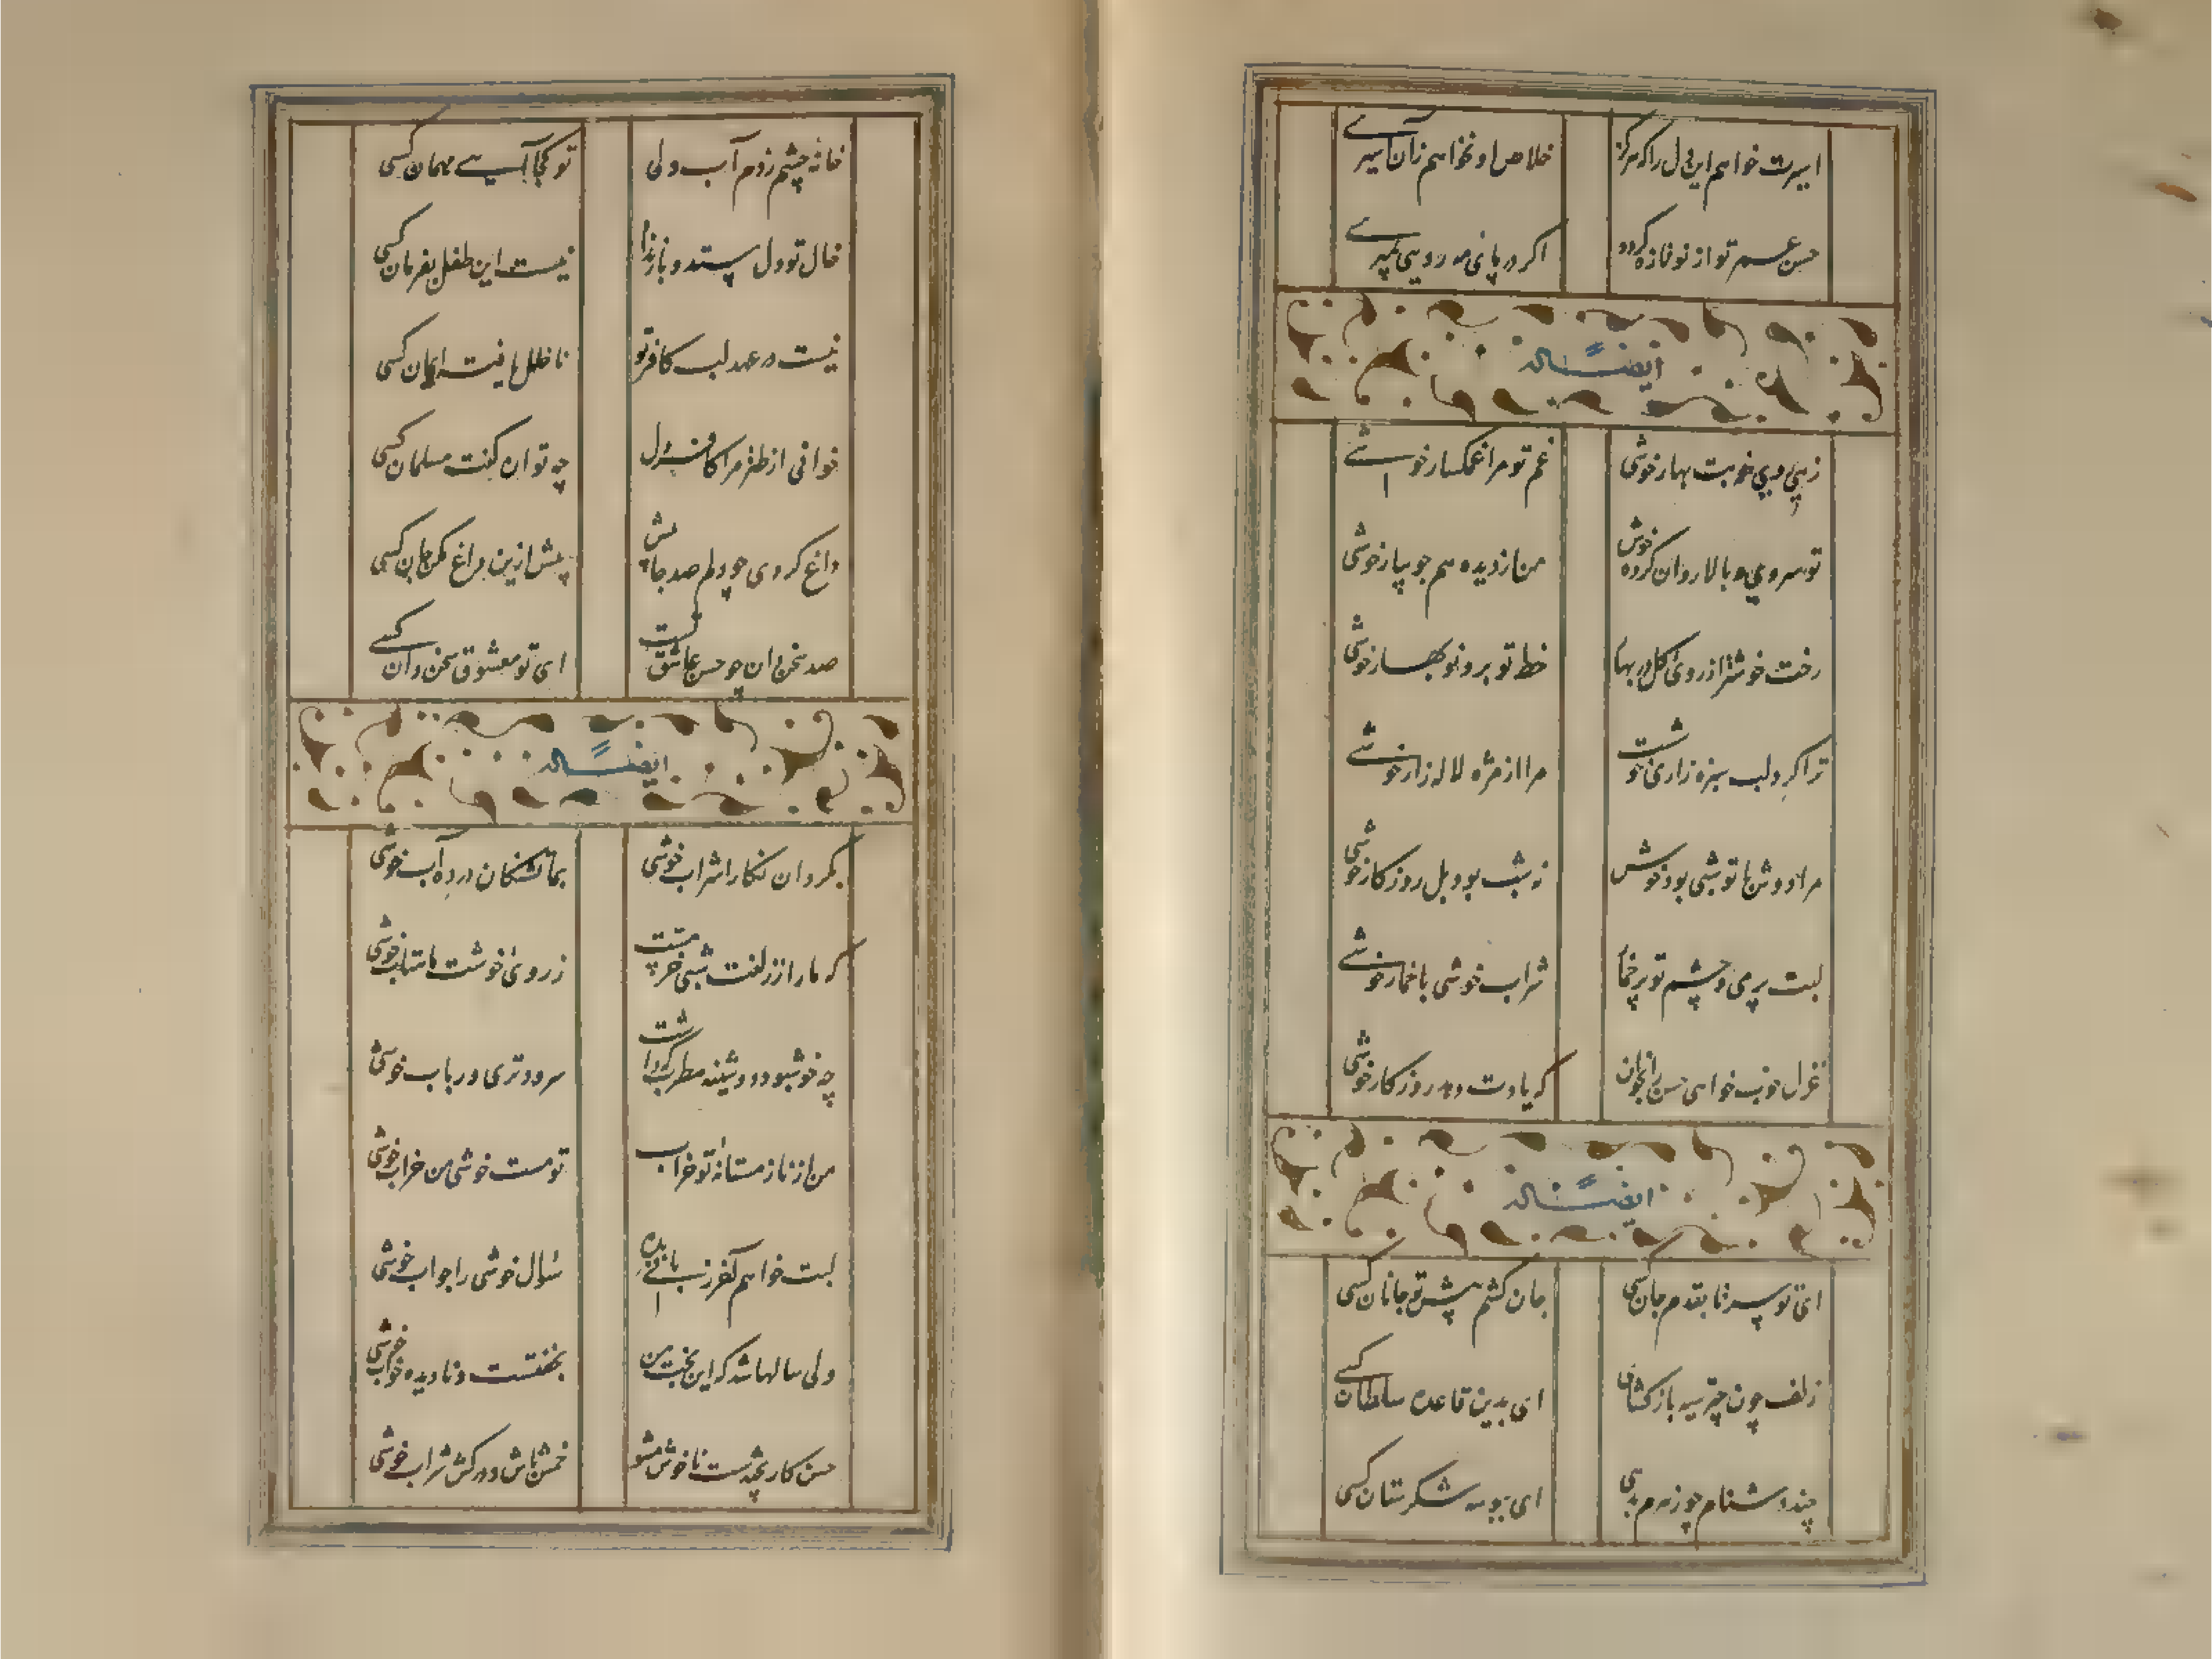 اسیرت خواهم این دل را که هرگز خلاص او نخواهم زان اسیری
حسن عمر تو از نو تازه گردد اگر در پای مه رویی بمیری
ایضاً له
زهی روی خوبت بهار خوشی غم تو مرا غمگسار خوشی
تو سروی و بالا روان کرده خوش من از دیده هم جویبار خوشی
رخت خوشتر از روی گل در بهار خط تو برو نوبهار خوشی
ترا گرد لب سبزه زاری خوشت مرا از مژه لاله زار خوشی
مرا دوش با تو شبی بود خوش نه شب بود بل روزگار خوشی
لبت پر می و چشم تو پر خمار شراب خوشی با خمار خوشی
غزل خوب خواهی حسن را بخوان که یادت دهد روزگار خوشی
ایضاً له
ای تو سر تا بقدم جان کسی جان کشم پیش تو جانان کسی
زلف چون چتر سیه باز گشای ای بدین قاعده سلطان کسی
چند دشنام چو زهرم بدهی ای ببوسه شکرستان کسی
خانه چشم زدم آب ولی تو کجا آیی مهمان کسی
خال تو دل ستد و باز نداد نیست این طفل بفرمان کسی
نیست در عهد لب کافر تو نا خلل یافته ایمان کسی
خوانی از طنز مرا کافر دل چه توان گفت مسلمان کسی
داغ کردی چو دلم صد جا بیش پیش ازین داغ مکن جان کسی
صد سخن دان چو حسن عاشق تست ای تو معشوق سخن دان کسی
ایضاً له
بگردان نگارا شراب خوشی بما تشنگان در ده آب خوشی
که ما را ز زلفت شبی خرمست ز روی خوشت ماهتاب خوشی
چه خوش بود دوشینه مطرب که داشت سرود تری و رباب خوشی
من از ناز مستانهٔ تو خراب تو مست خوشی من خراب خوشی
لبت خواهم آخر زبانی بده سؤال خوشی را جواب خوشی
ولی سالها شد که این بخت من بخفتست و نادیده خواب خوشی
حسن کار پخته‌ست ناخوش مشو خمش باش و درکش شراب خوشی